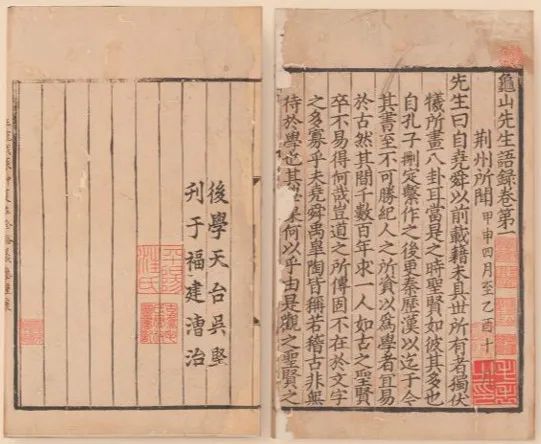 龜山先生語錄卷第一
荆州所聞 甲申四月至乙酉十
先生曰自堯舜以前載籍未具世所有者獨伏
犧所畫八卦耳當是之時聖賢如彼其多也
自孔子刪定繫作之後更秦歷漢以迄于今
其書至不可勝紀人之所資以爲學者宜易
於古然其間千數百年求一人如古之聖賢
卒不易得何哉豈道之所傳固不在於文字
之多寡乎夫堯舜禹臯陶皆稱若稽古非無
待於學也其果何以乎由是觀之聖賢之
後學天台吳堅
刊于福建漕治
平陽
汪氏